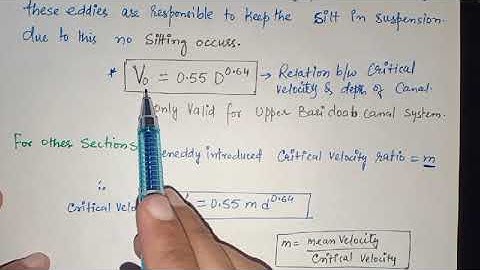 these eddies are Responsible to keep the Silt in suspension.
due to this no Silting occurs.
* V₀ = 0.55 D^0.64 → Relation b/w Critical
velocity & depth of Canal.
only Valid for Upper Bari doab canal system.
For other Sections introduced Critical Velocity ratio = m
∴
Critical = 0.55 m d^0.64
m = mean Velocity / Critical Velocity